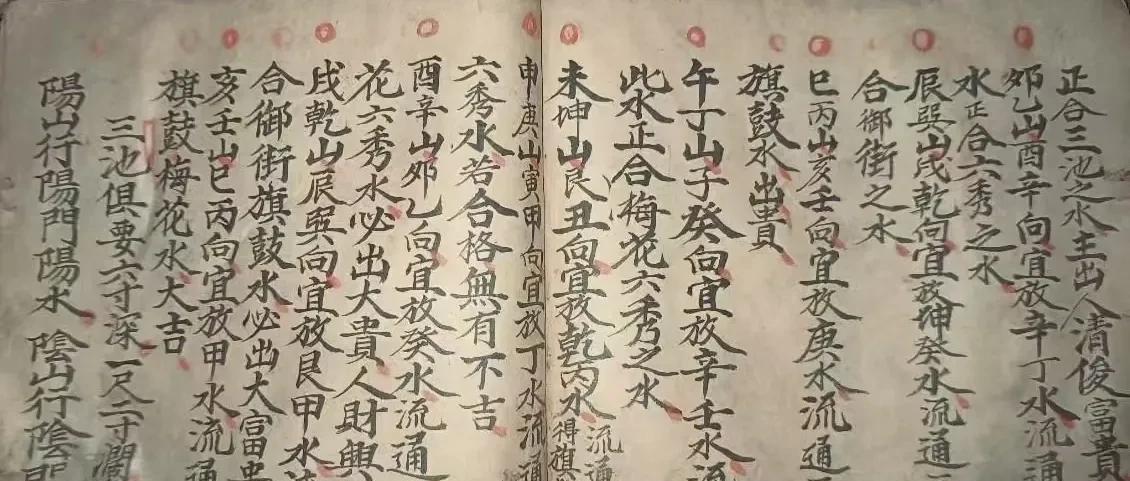 正合三池之水主出人清俊富貴
夘乙山酉辛向宜放辛丁水流通
水正合六秀之水
辰巽山戌乾向宜放坤癸水流通
合御街之水
巳丙山亥壬向宜放庚水流通
旗鼓水出貴
午丁山子癸向宜放辛壬水流
此水正合梅花六秀之水
未坤山艮丑向宜放乾丙水流通得旗
申庚山寅甲向宜放丁水流通
六秀水若合格無有不吉
酉辛山夘乙向宜放癸水流通
花六秀水必出大貴人財興
戌乾山辰巽向宜放艮甲水
合御街旗鼓水必出大富
亥壬山巳丙向宜放甲水流通
旗鼓梅花水大吉
三池俱要六寸深一尺二寸濶
陽山行陽門陽水 陰山行陰